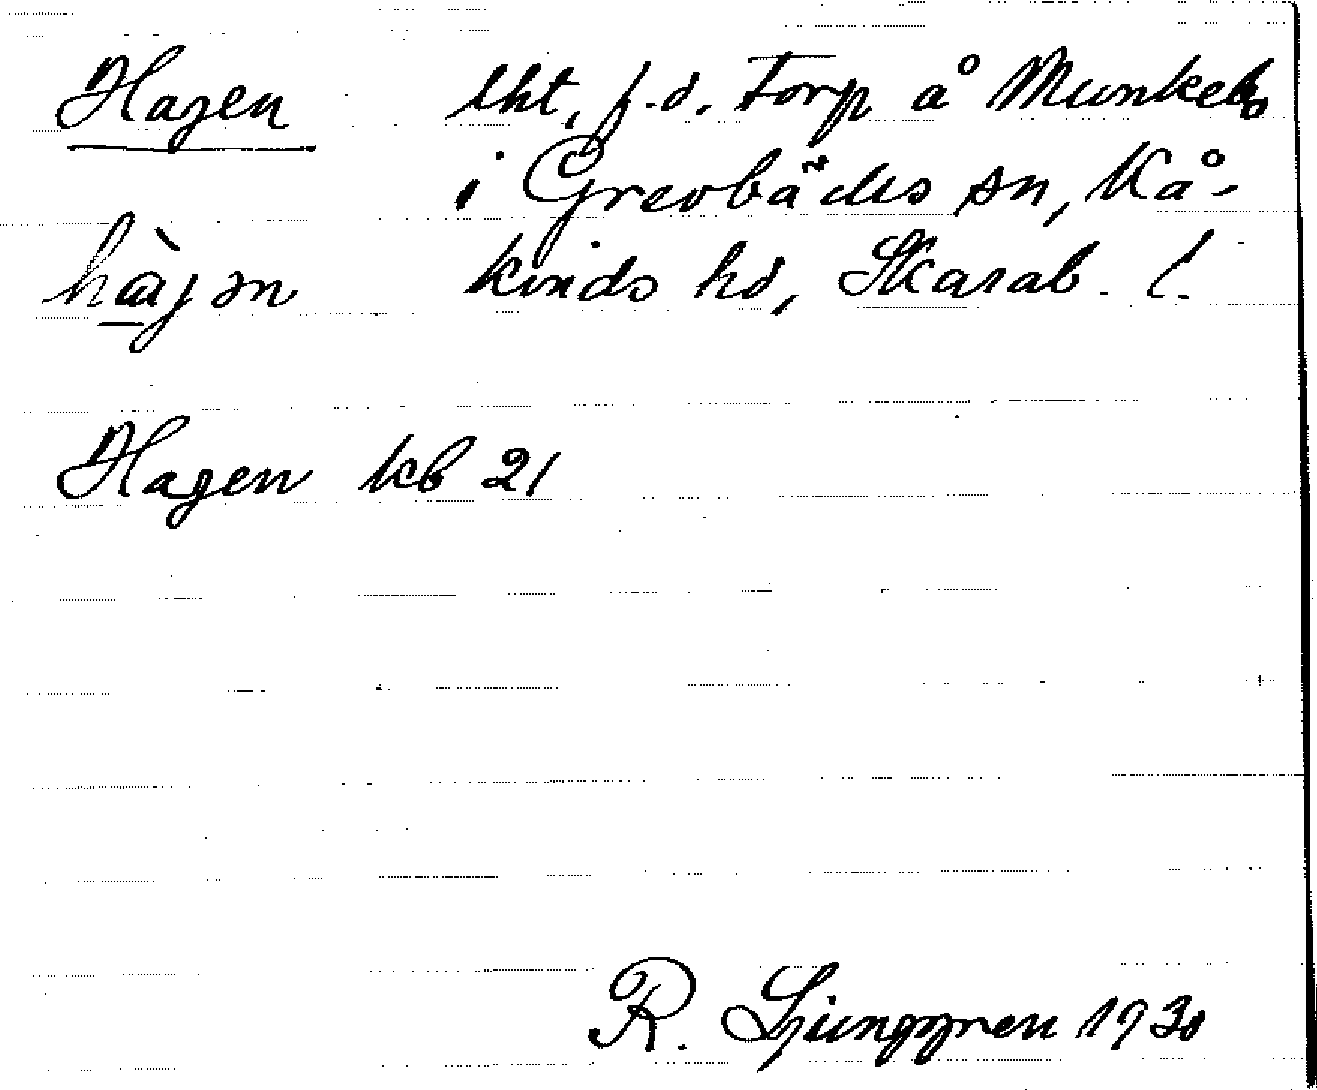 Hagen lht, f.d. Torp å Munkeb
i Grevbäcks sn, Kå-
hàjən kinds hd, Skarab. l.
Hagen kb 21
R. Ljunggren 1930